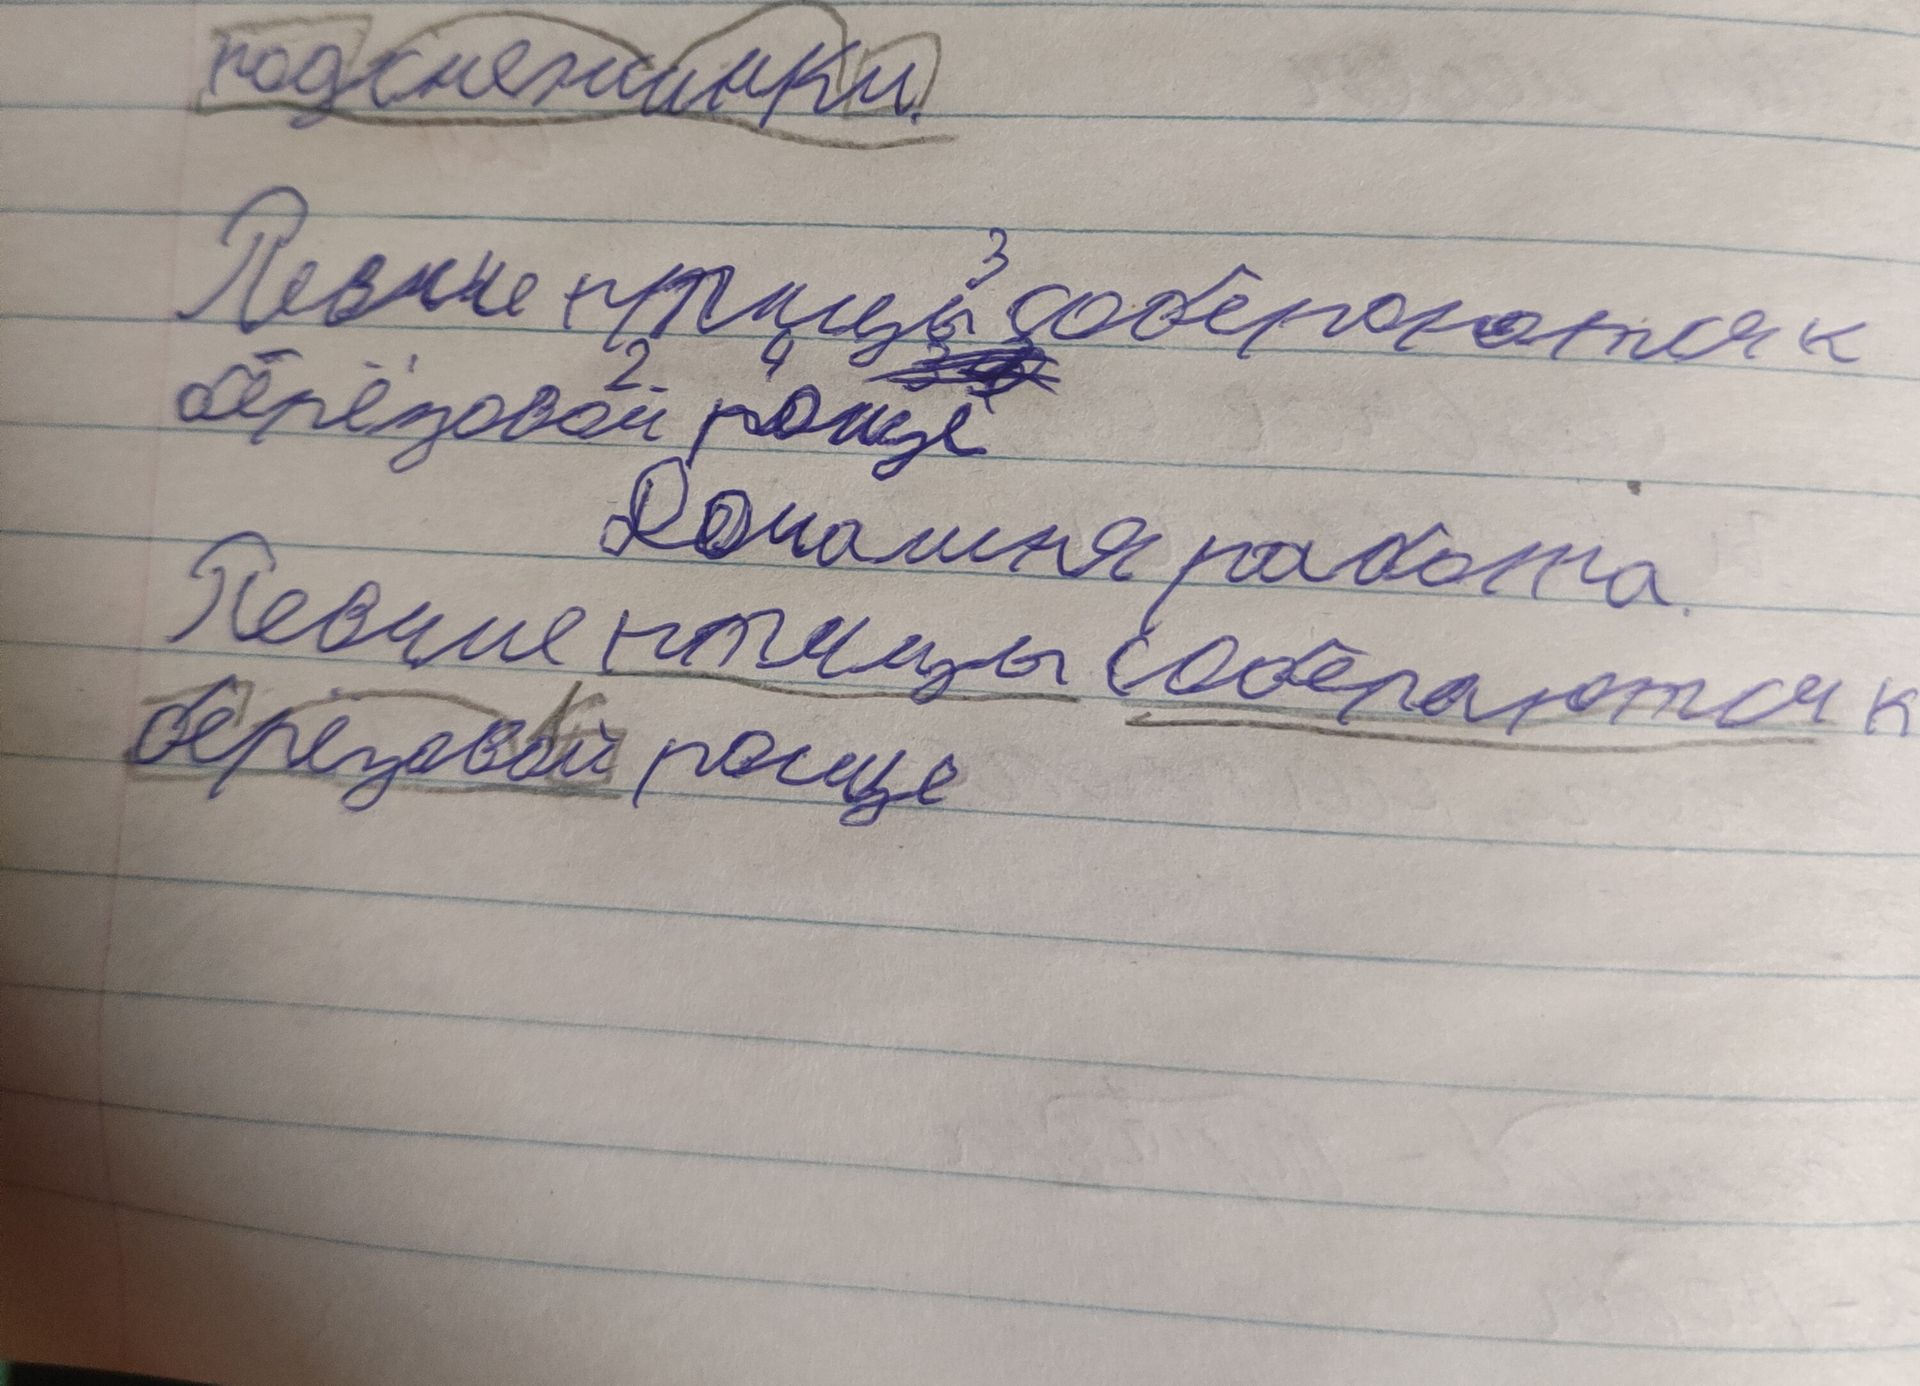 подснежники.
Певчие птицы 3 соберются к
берёзовой 2 4 роще
Домашня работа.
Певчие птицы собераются к
берёзовой роще